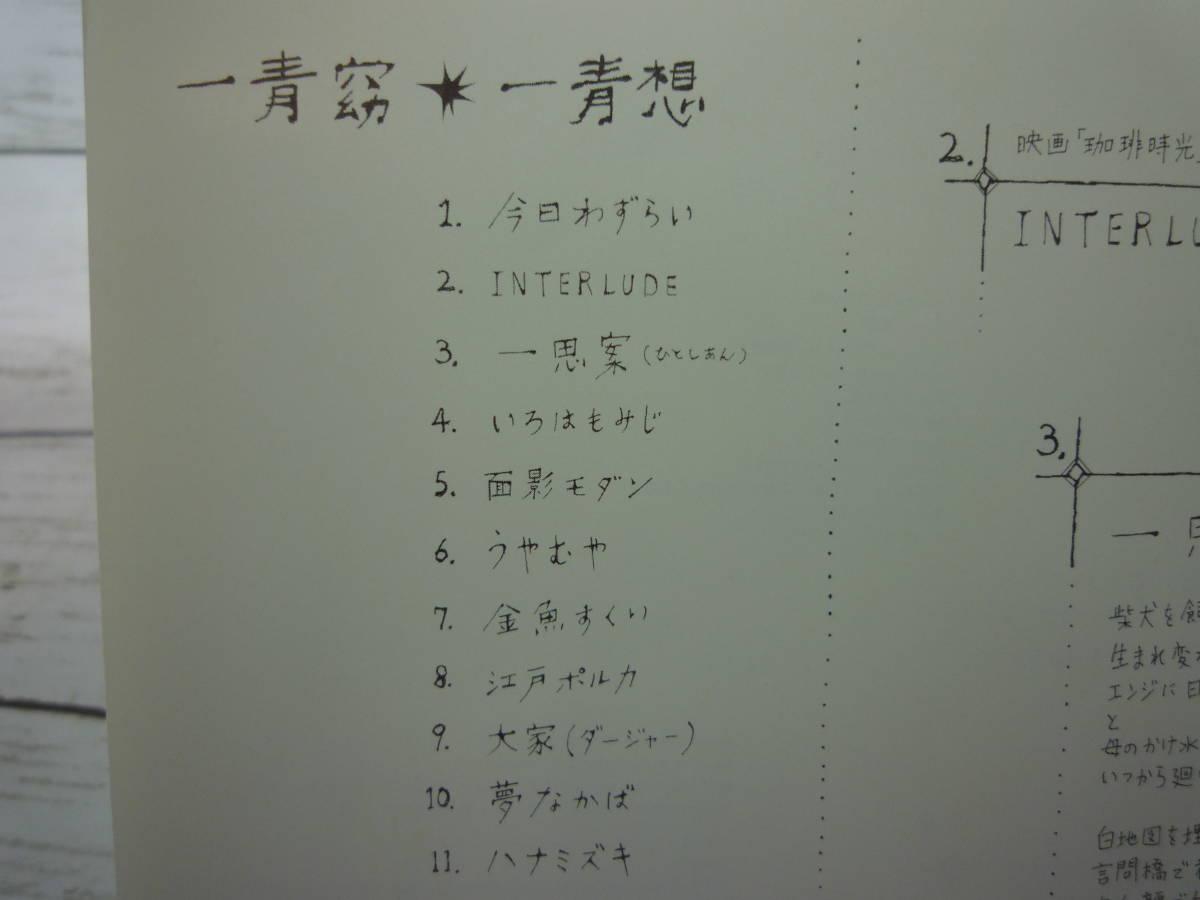 一青窈★一青想
1. 今日わずらい
2. INTERLUDE
3. 一思案(ひとしあん)
4. いろはもみじ
5. 面影モダン
6. うやむや
7. 金魚すくい
8. 江戸ポルカ
9. 大家(ダージャー)
10. 夢なかば
11. ハナミズキ
2. 映画「珈琲時光」
INTERLU
3.
一思
柴犬を飼
生まれ変わ
エンジに
と
母のかけ水
いつから廻
白地図を埋
言問橋で